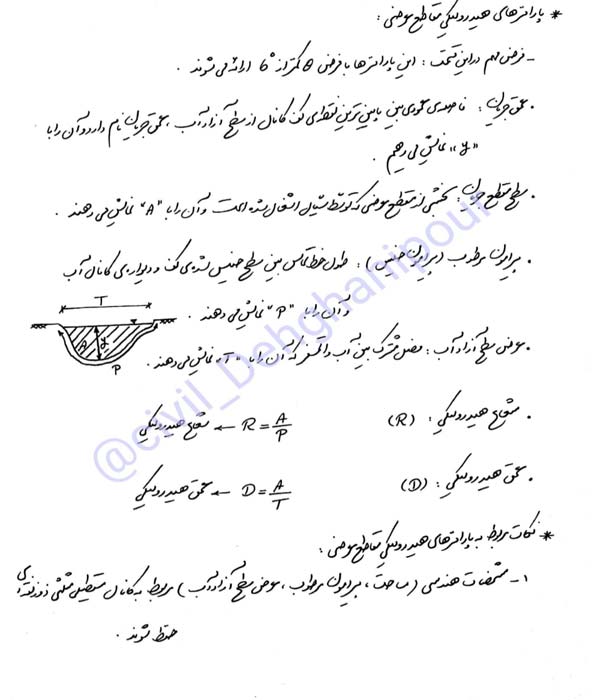 * پارامترهای هیدرولیکی مقاطع عرضی :
- فرض مهم در این قسمت : این پارامترها با فرض θ کمتر از 6° ارائه می شوند .
• عمق جریان : فاصله ی عمودی بین پایین ترین نقطه ی کف کانال از سطح آزاد آب ، عمق جریان نام دارد و آن را با
"y" نمایش می دهیم .
• سطح مقطع جریان : بخشی از مقطع عرضی که توسط سیال اشغال شده است و آن را با "A" نمایش می دهند .
• پیرامون مرطوب (پیرامون خیس) : طول خط تماس بین سطح خیس شده ی کف و دیواره ی کانال آب
و آن را با "P" نمایش می دهند .
T
A
y
P
• عرض سطح آزاد آب : فصل مشترک بین آب و اتمسفر که آن را با نمایش می دهند .
• شعاع هیدرولیکی : (R) R = A/P ← شعاع هیدرولیکی
• عمق هیدرولیکی : (D) D = A/T ← عمق هیدرولیکی
* نکات مربوط به پارامترهای هیدرولیکی مقاطع عرضی :
۱- مشخصات هندسی (مساحت ، پیرامون مرطوب ، عرض سطح آزاد آب) مربوط به کانال مستطیل مثلثی ذوزنقه ای
حفظ شوند .
@civil_Dehghanipour